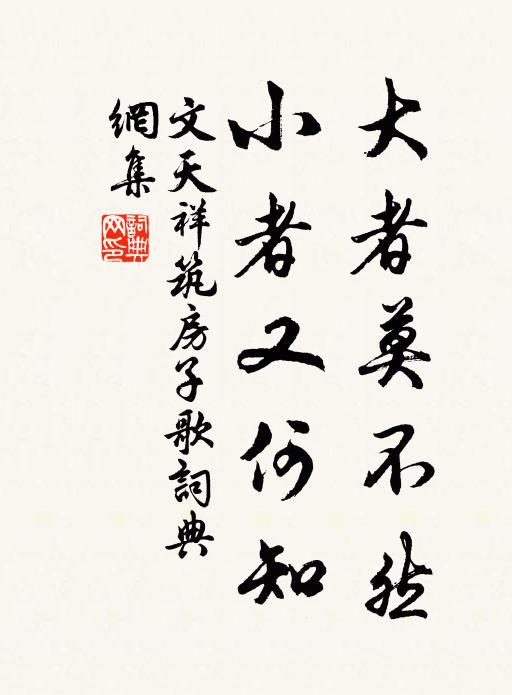 大者莫不然
小者又何知
文天祥筑房子歌詞典
網集
詞典網印